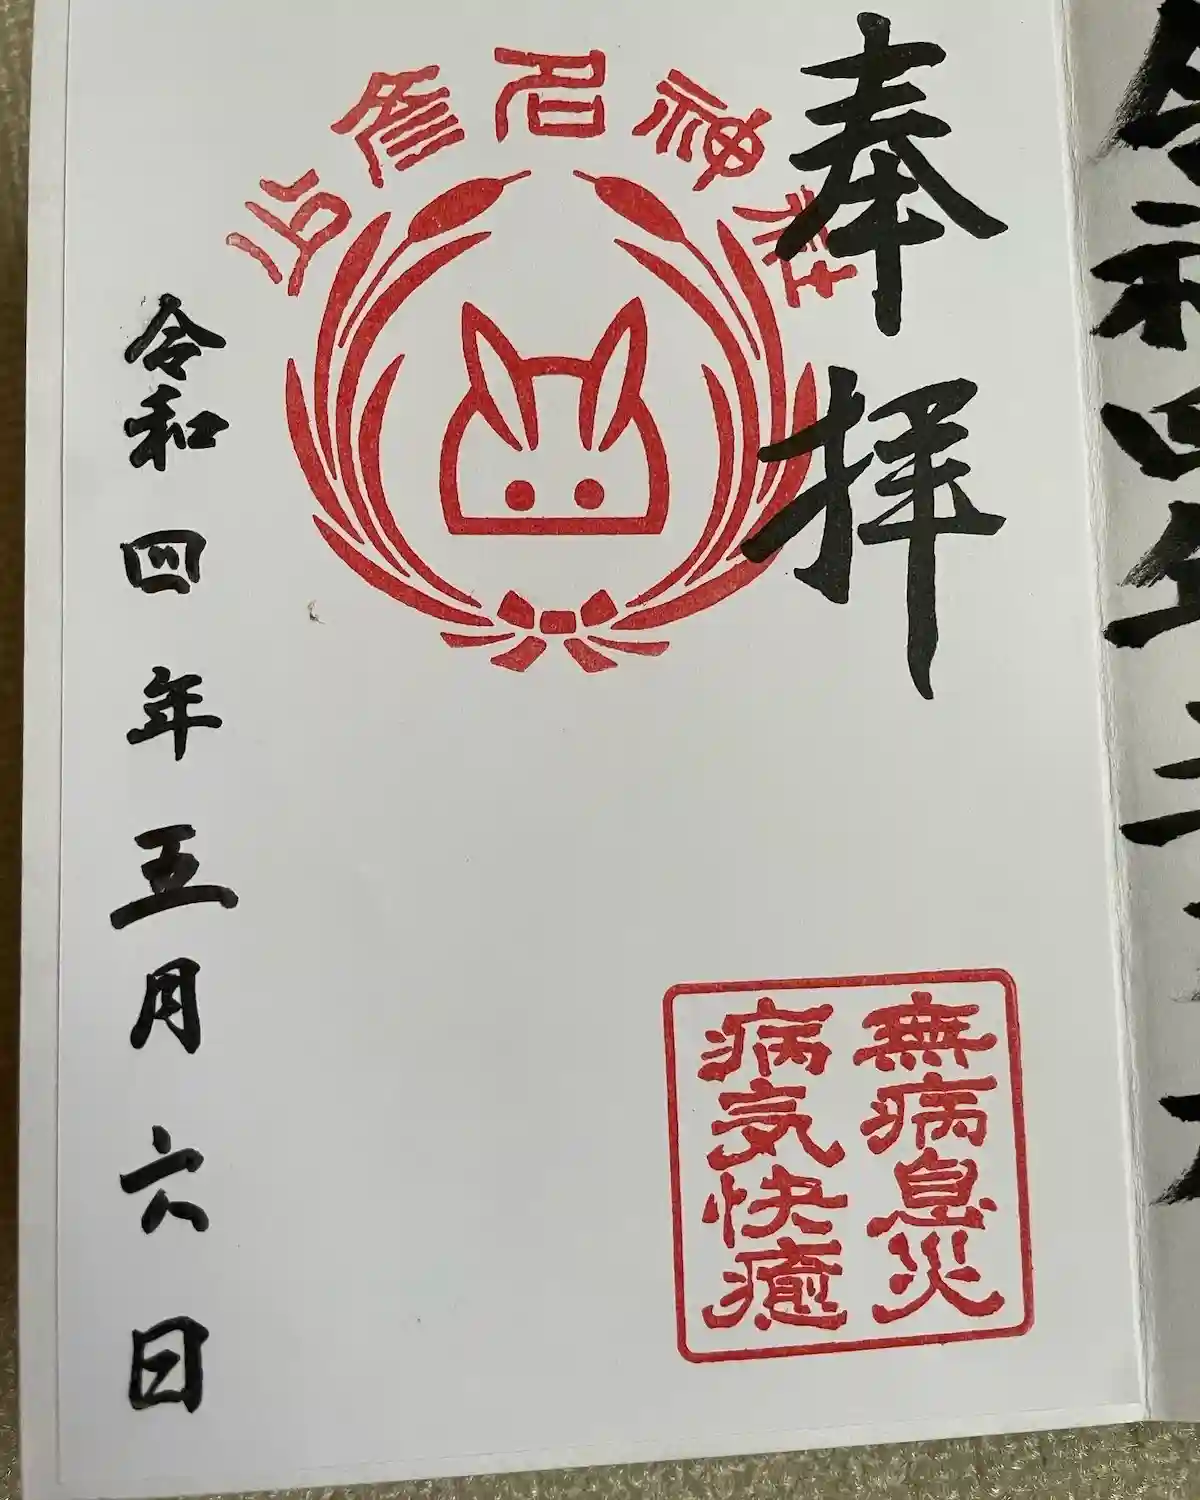 奉拝
少彦名神社
無病息災
病気快癒
令和四年五月六日